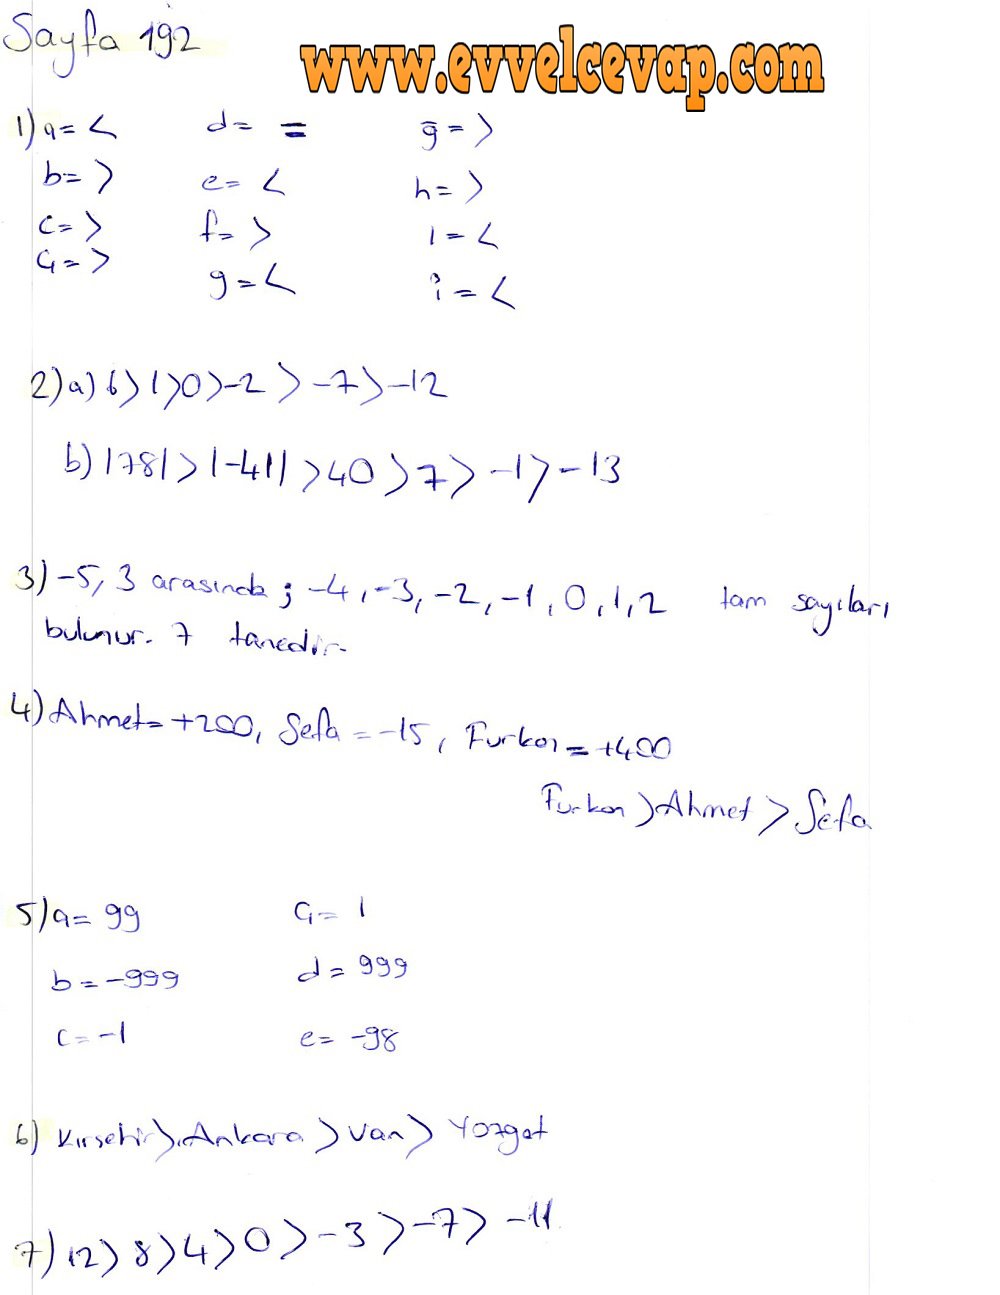 Sayfa 192
www.evvelcevap.com
1) a= < d= = ğ= >
b= > e= < h= >
c= > f= > ı= <
Ç= > g= < i= <
2) a) 6>1>0>-2>-7>-12
b) |78|>|-41|>40>7>-1>-13
3) -5, 3 arasında; -4, -3, -2, -1, 0, 1, 2 tam sayıları
bulunur. 7 tanedir.
4) Ahmet= +200, Sefa = -15, Furkan = +400
Furkan > Ahmet > Sefa
5) a= 99 Ç= 1
b = -999 d = 999
c = -1 e= -98
6) Kırşehir > Ankara > Van > Yozgat
7) 12 > 8 > 4 > 0 > -3 > -7 > -11